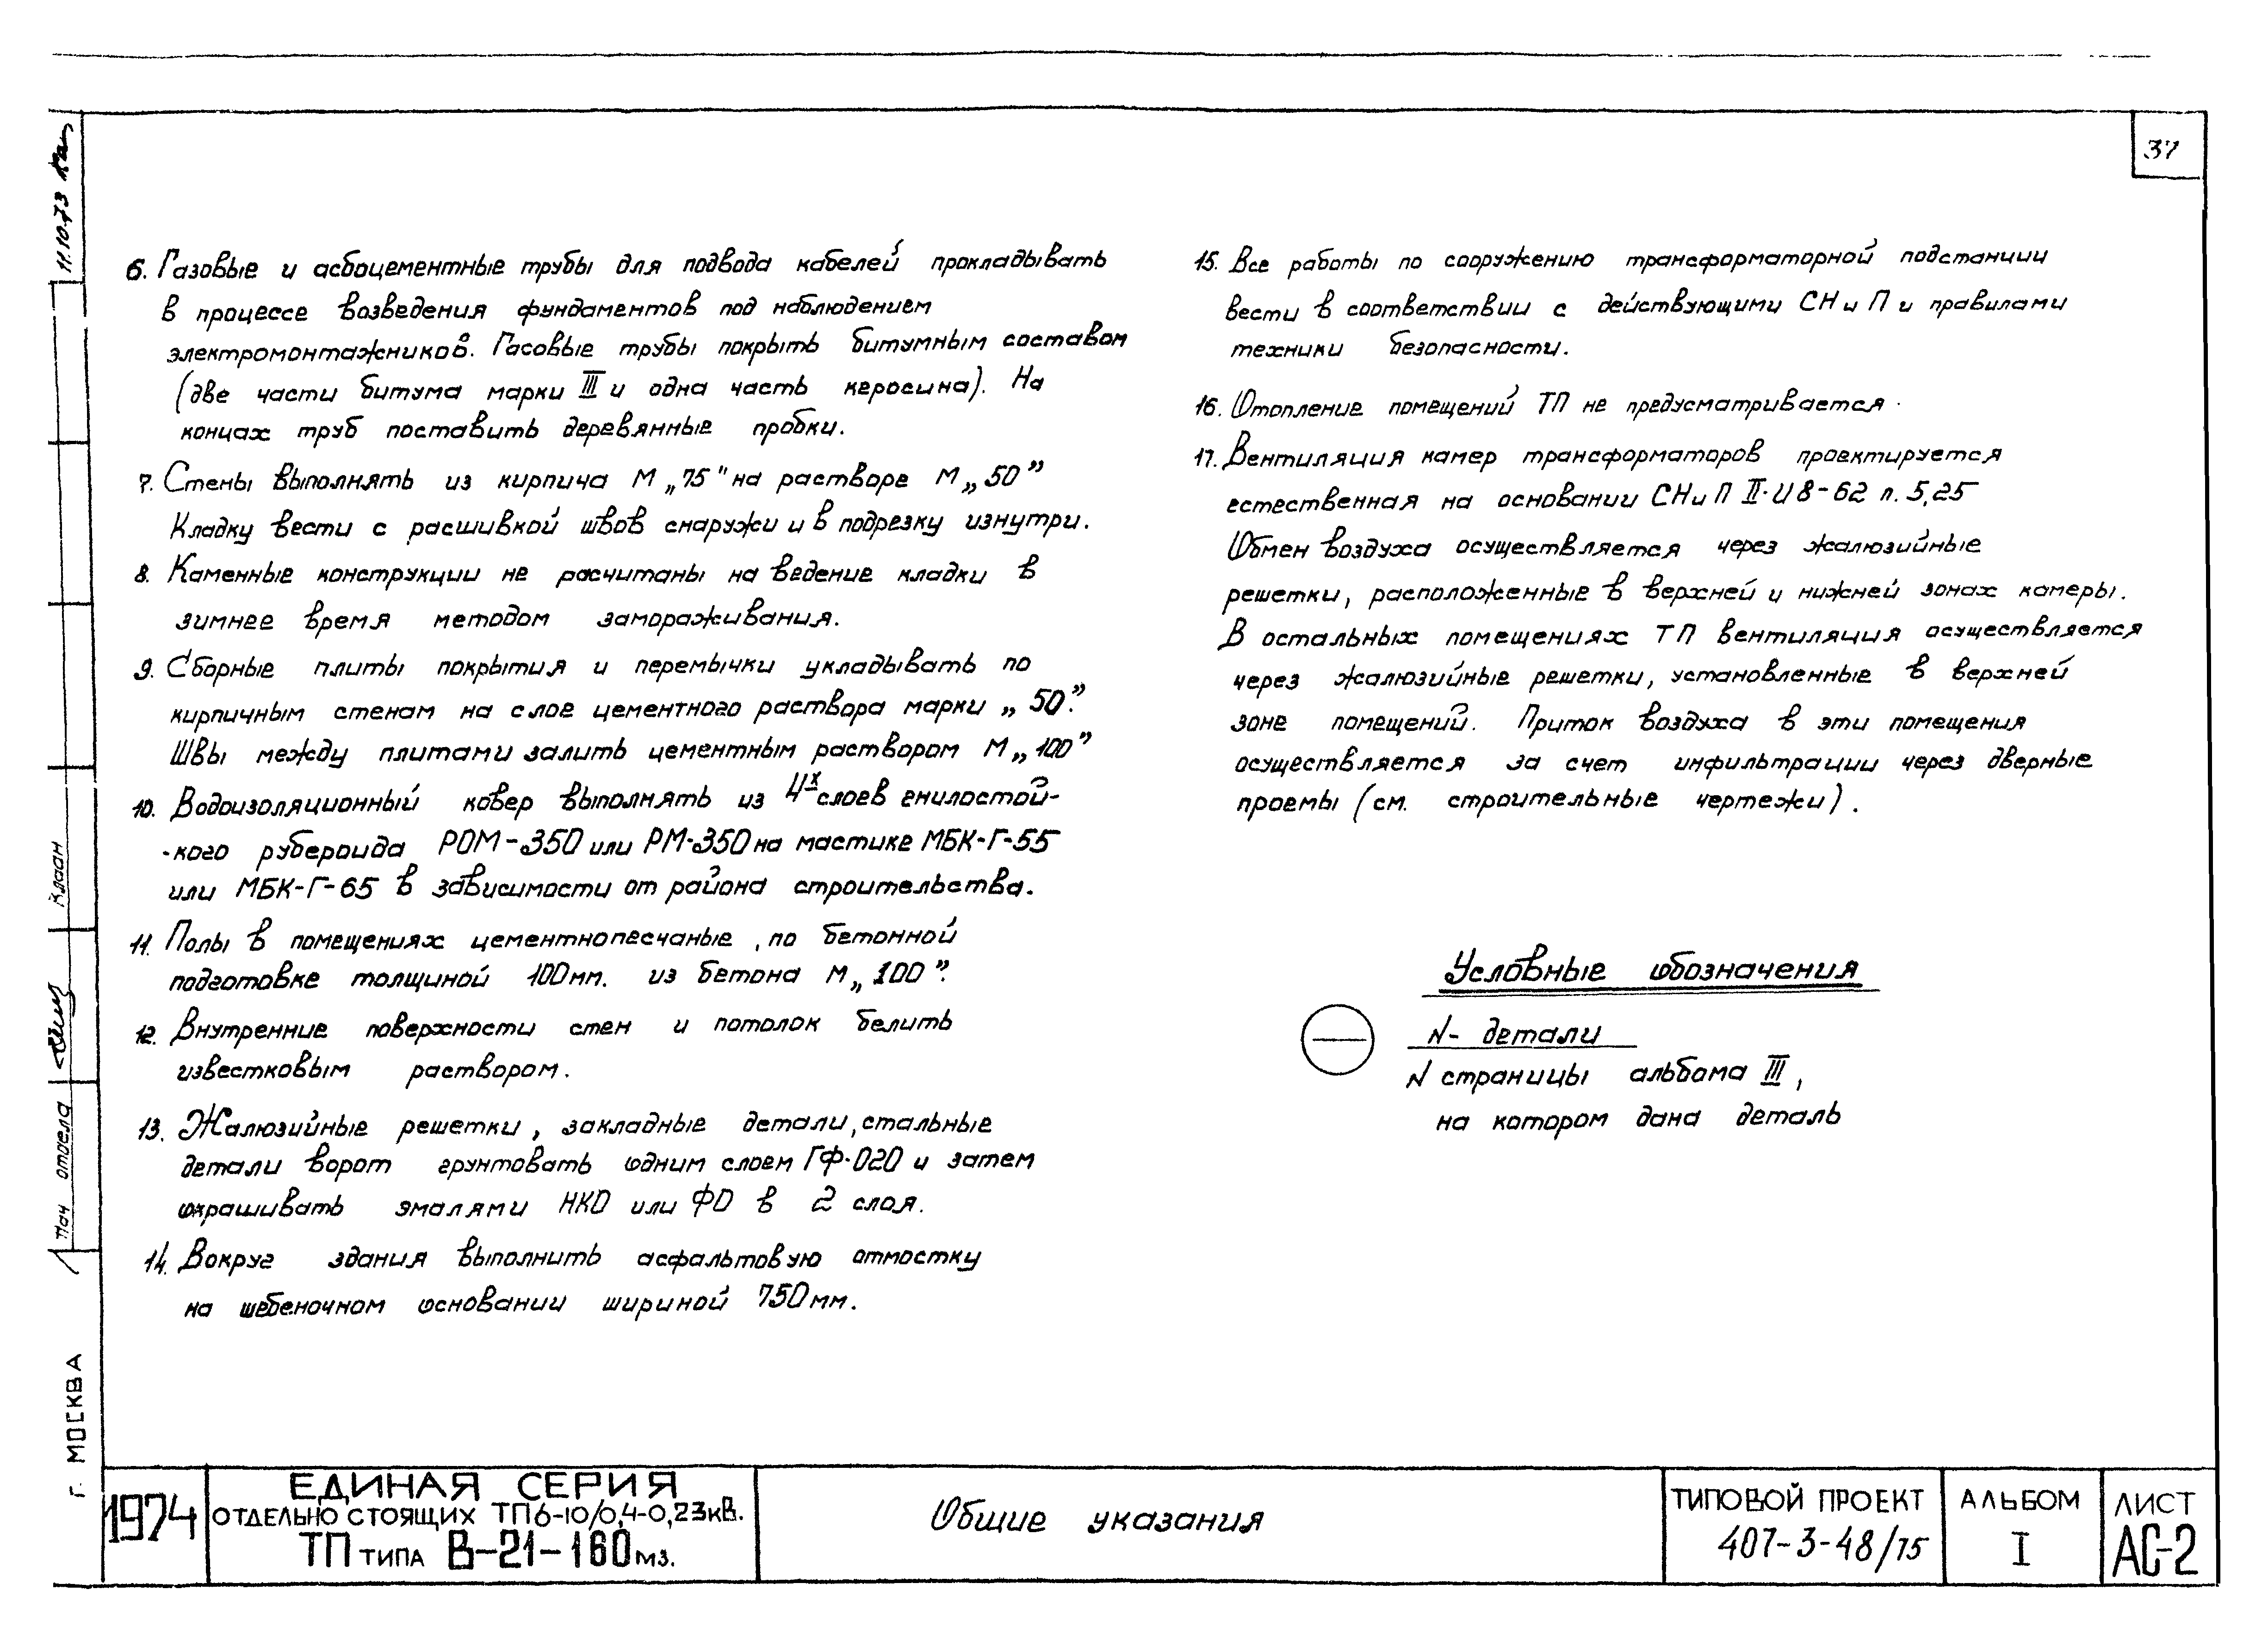 37
6. Газовые и асбоцементные трубы для подвода кабелей прокладывать
в процессе возведения фундаментов под наблюдением
электромонтажников. Гасовые трубы покрыть битумным составом
(две части битума марки III и одна часть керосина). На
концах труб поставить деревянные пробки.
7. Стены выполнять из кирпича М „75" на растворе М „50”
Кладку вести с расшивкой швов снаружи и в подрезку изнутри.
8. Каменные конструкции не расчитаны на ведение кладки в
зимнее время методом замораживания.
9. Сборные плиты покрытия и перемычки укладывать по
кирпичным стенам на слое цементного раствора марки „50”.
Швы между плитами залить цементным раствором М „100”
10. Водоизоляционный ковер выполнять из 4х слоев гнилостой-
-кого рубероида РОМ-350 или РМ-350 на мастике МБК-Г-55
или МБК-Г-65 в зависимости от района строительства.
11. Полы в помещениях цементнопесчаные, по бетонной
подготовке толщиной 100мм. из бетона М „100”.
12. Внутренние поверхности стен и потолок белить
известковым раствором.
13. Жалюзийные решетки, закладные детали, стальные
детали ворот грунтовать одним слоем ГФ-020 и затем
окрашивать эмалями НКО или ФО в 2 слоя.
14. Вокруг здания выполнить асфальтовую отмостку
на шебеночном основании шириной 750мм.
15. Все работы по сооружению трансформаторной подстанции
вести в соответствии с действующими СН и П и правилами
техники безопасности.
16. Отопление помещений ТП не предусматривается.
17. Вентиляция камер трансформаторов проектируется
естественная на основании СН и П II-И 8-62 п. 5,25
Обмен воздуха осуществляется через жалюзийные
решетки, расположенные в верхней и нижней зонах камеры.
В остальных помещениях ТП вентиляция осуществляется
через жалюзийные решетки, установленные в верхней
зоне помещений. Приток воздуха в эти помещения
осуществляется за счет инфильтрации через дверные
проемы (см. строительные чертежи).
Условные обозначения
N- детали
N страницы альбома III,
на котором дана деталь
11.10.73
Клаан
Нач отдела
Г. МОСКВА
1974
ЕДИНАЯ СЕРИЯ
ОТДЕЛЬНО СТОЯЩИХ ТП 6-10/0,4-0,23кВ.
ТП ТИПА В-21-160 мз.
Общие указания
ТИПОВОЙ ПРОЕКТ
407-3-48/75
АЛЬБОМ
I
ЛИСТ
АС-2